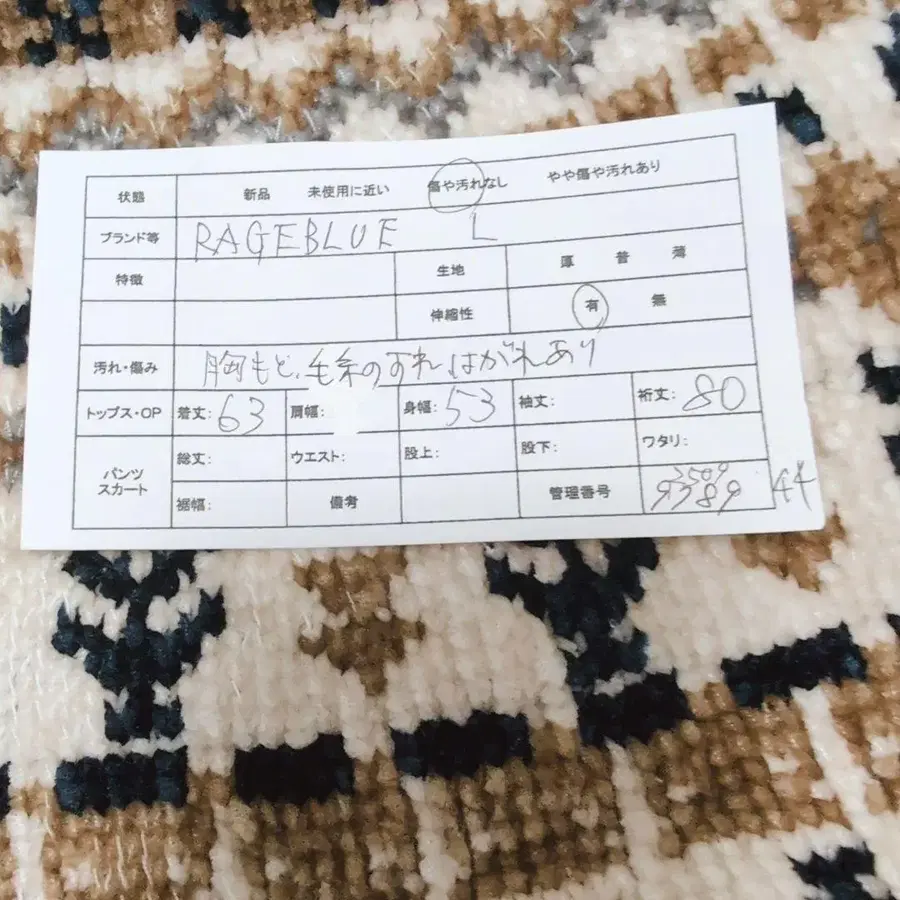 状態 新品 未使用に近い 傷や汚れなし やや傷や汚れあり
ブランド等 RAGEBLUE L
特徴 生地 厚 普 薄
伸縮性 有 無
汚れ・傷み 胸もと、毛糸のすれはがれあり
トップス・OP 着丈: 63 肩幅: 身幅: 53 袖丈: 裄丈: 80
パンツ スカート 総丈: ウエスト: 股上: 股下: ワタリ:
裾幅: 備考 管理番号 9389 44